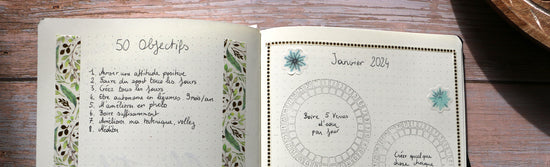 50 Objectifs
1. Avoir une attitude positive
2. Faire du sport tous les jours
3. Créez tous les jours
4. Être autonome en légumes 9 mois/an
5. M'améliorer en photo
6. Boire suffisamment
7. Améliorer ma technique, volley
8. Méditer
Janvier 2024
Boire 5 Verres
d'eau
par jour
Créer quelque
chose chaque